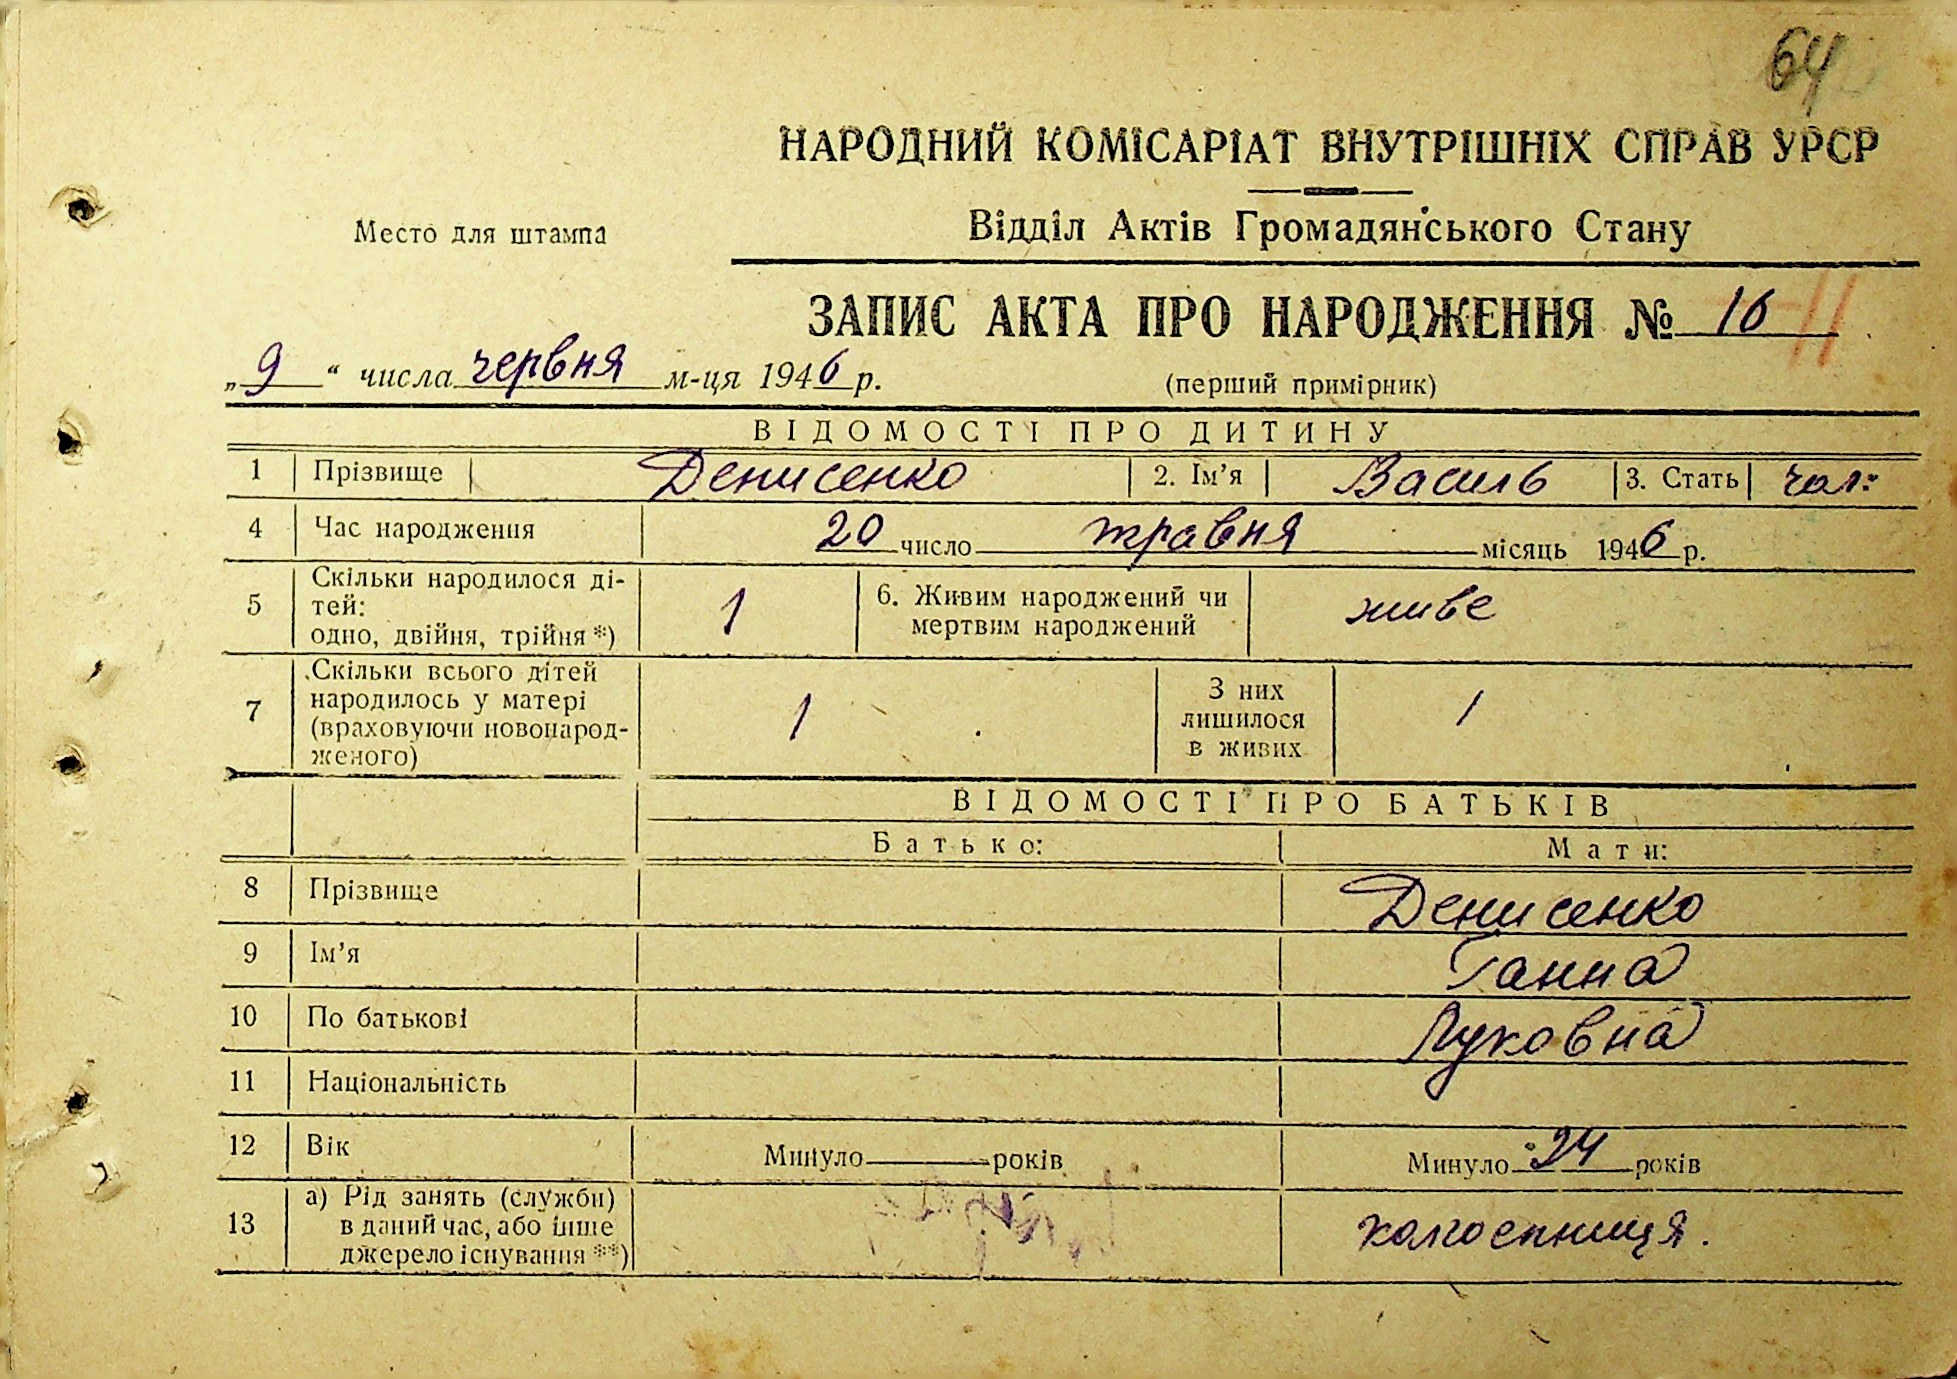 64
НАРОДНИЙ КОМІСАРІАТ ВНУТРІШНІХ СПРАВ УРСР
Место для штампа
Відділ Актів Громадянського Стану
ЗАПИС АКТА ПРО НАРОДЖЕННЯ № 16 11
„9“ числа червня м-ця 1946 р.
(перший примірник)
ВІДОМОСТІ ПРО ДИТИНУ
1 Прізвище Денисенко 2. Ім’я Василь 3. Стать чол:
4 Час народження 20 число травня місяць 1946 р.
5 Скільки народилося ді-
тей:
одно, двійня, трійня*) 1 6. Живим народжений чи
мертвим народжений живе
7 Скільки всього дітей
народилось у матері
(враховуючи новонарод-
женого) 1 З них
лишилося
в живих 1
ВІДОМОСТІ ПРО БАТЬКІВ
Батько: Мати:
8 Прізвище Денисенко
9 Ім’я Ганна
10 По батькові Луковна
11 Національність
12 Вік Минуло років Минуло 24 років
13 а) Рід занять (служби)
в даний час, або інше
джерело існування**) колгоспниця.